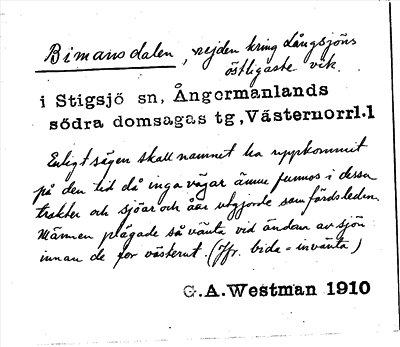 Bimansdalen, nejden kring Långsjöns
östligaste vik.
i Stigsjö sn, Ångermanlands
södra domsagas tg, Västernorrl.l
Enligt sägen skall namnet ha uppkommit
på den tid då inga vägar ännu funnos i dessa
trakter och sjöar och åar utgjorde samfärdsleden.
Männen plägade så vänta vid ändan av sjön
innan de for västerut. (Jfr. bida = invänta)
G.A.Westman 1910